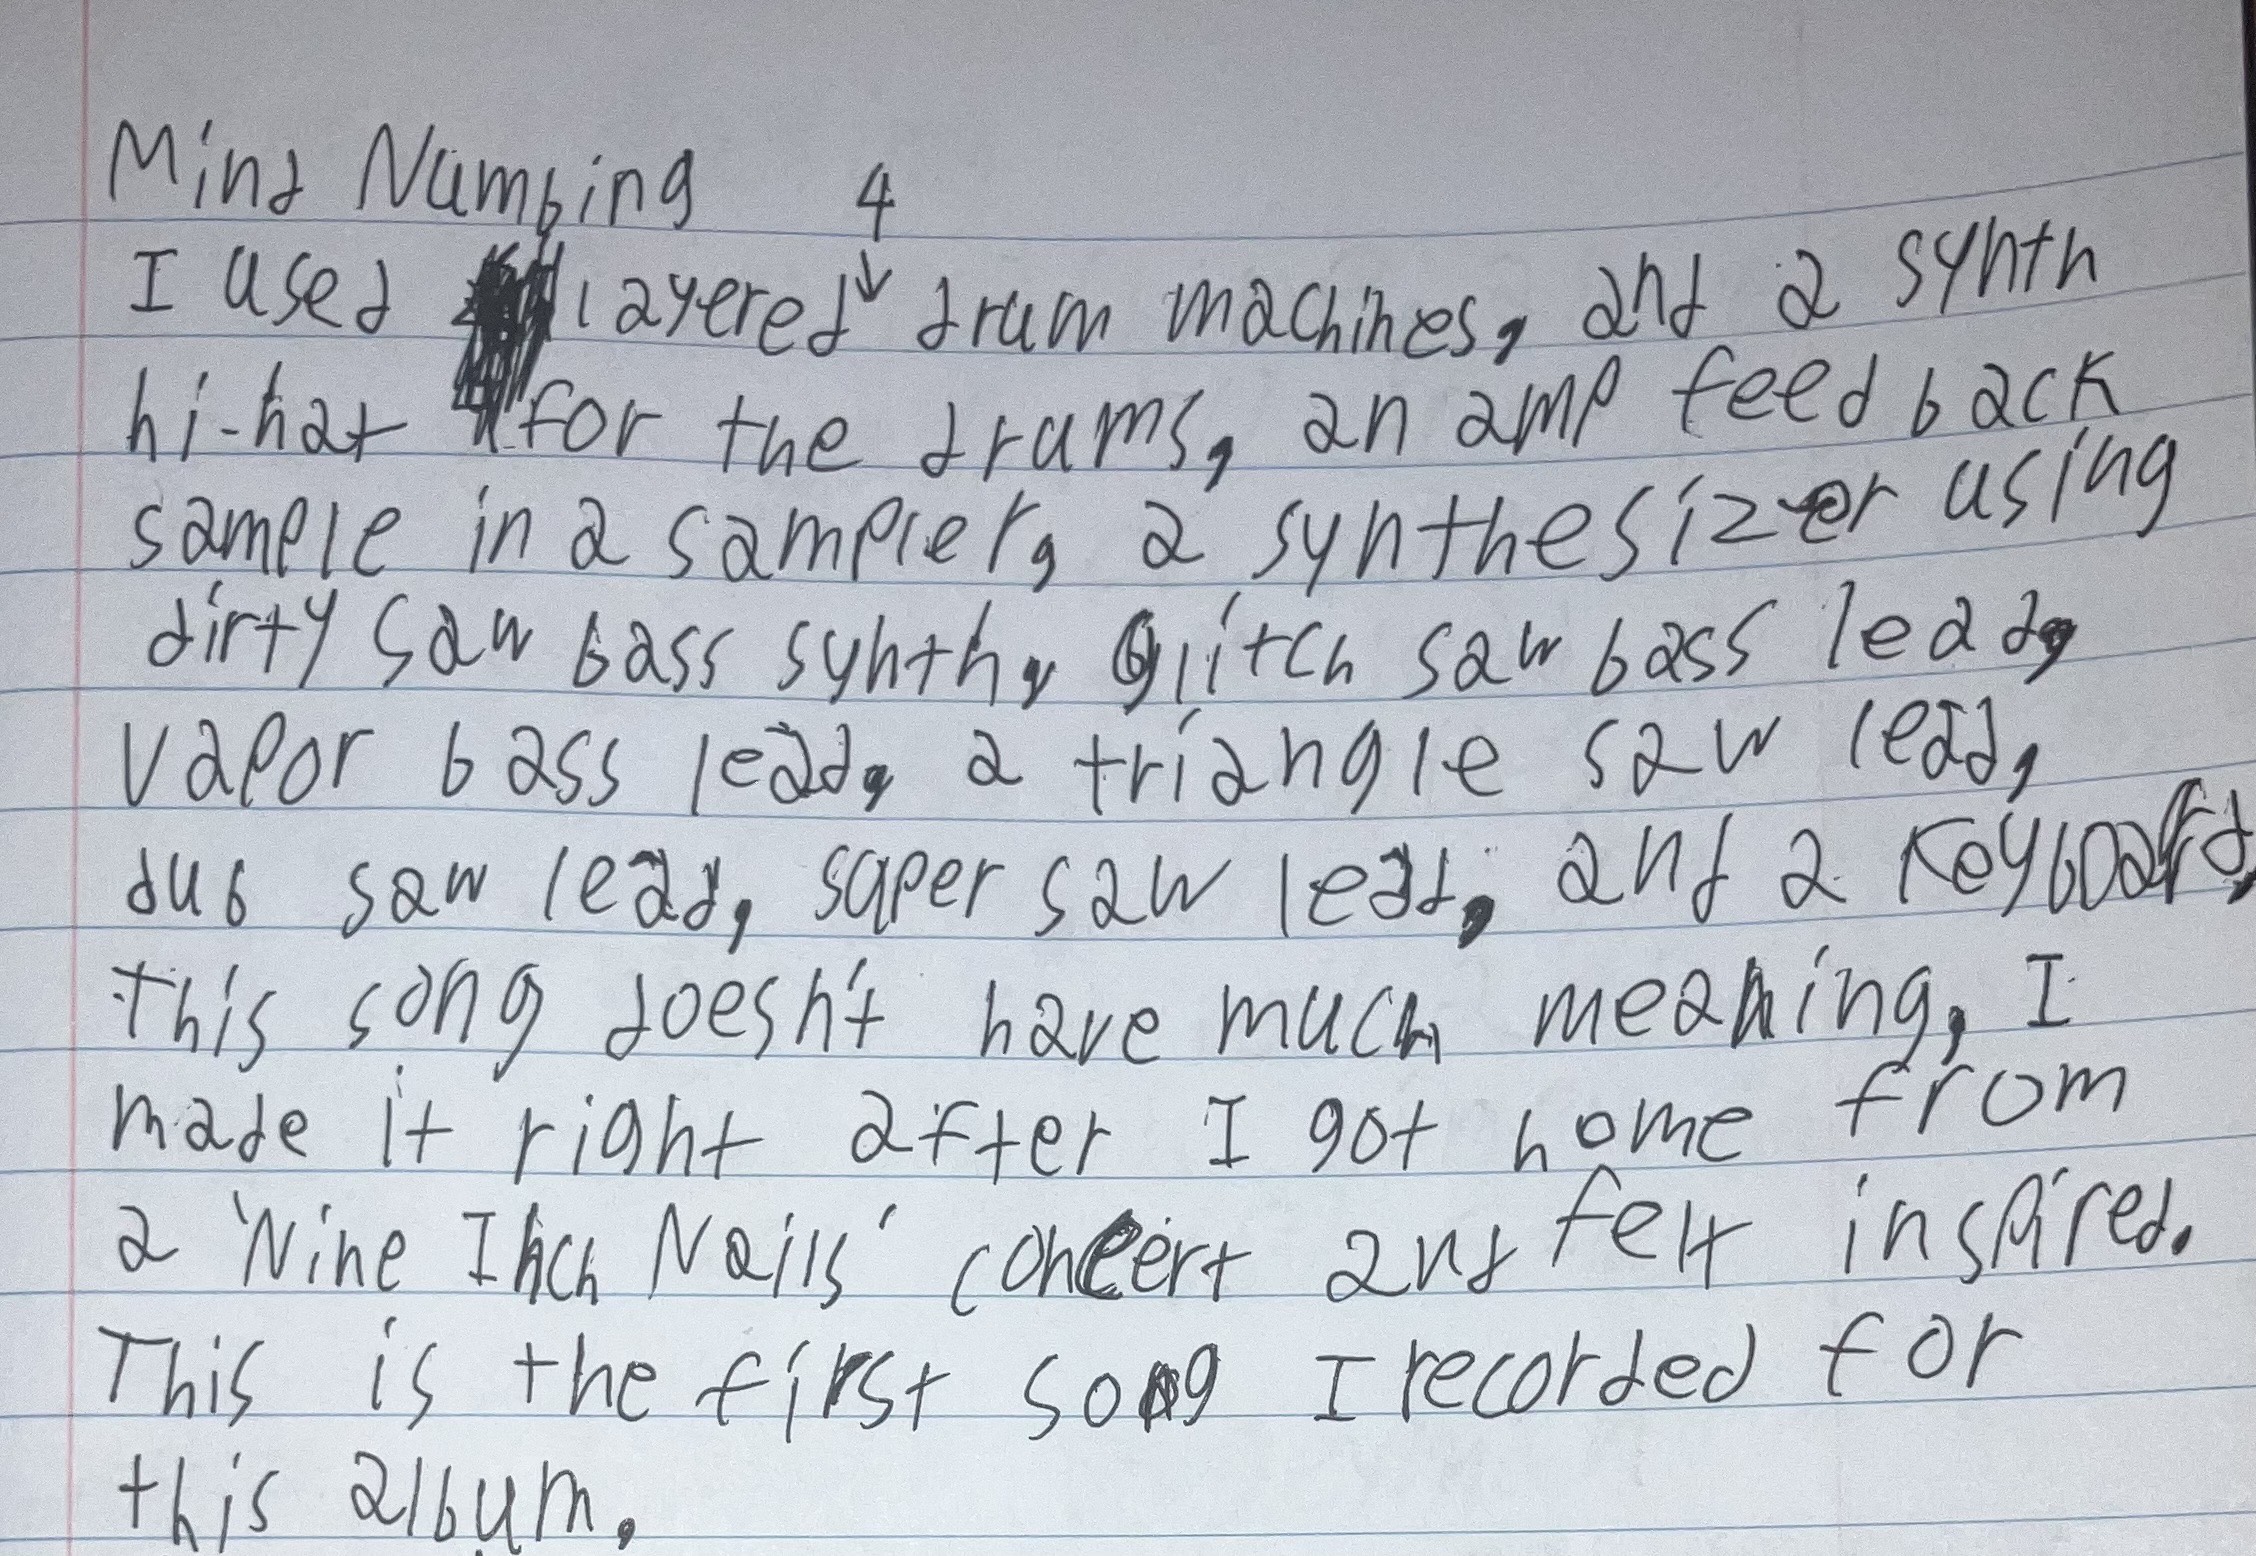 Mind Numbing 4
I used layered ↓ drum machines, and a synth
hi-hat for the drums, an amp feedback
sample in a sampler, a synthesizer using
dirty saw bass synth, Glitch saw bass lead,
vapor bass lead, a triangle saw lead,
dub saw lead, super saw lead, and a keyboard,
this song doesn't have much meaning, I
made it right after I got home from
a 'Nine Inch Nails' concert and felt inspired.
This is the first song I recorded for
this album.